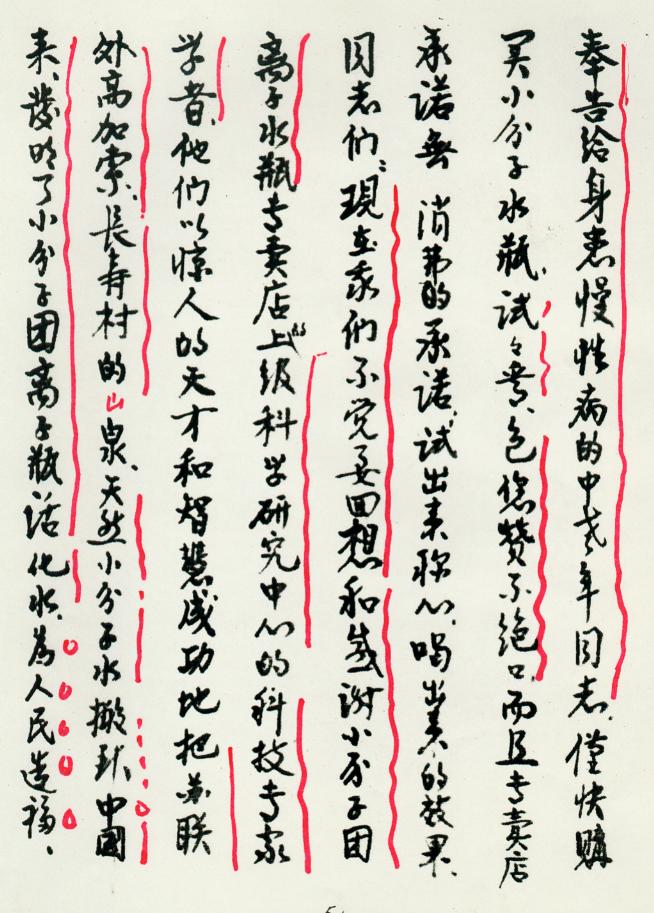 奉告给身患慢性病的中老年同志,仅快購
买小分子水瓶,试々者,包您赞不绝口,而且专卖店
承诺無消费的承诺,试出来称心,喝出美的效果.
同志们:現在我们不觉要回想和感谢小分子团
离子水瓶专卖店上级科学研究中心的科技专家
学者,他们以惊人的天才和智慧成功地把苏联
外高加索、長寿村的山泉、天然小分子水搬到中國
来、發明了小分子团离子瓶活化水,為人民造福、